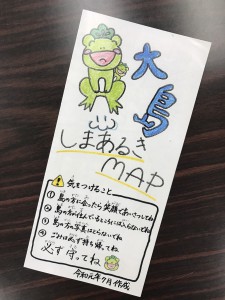 大島
しまあるき
MAP
気をつけること
① 島の方に会ったら笑顔であいさつしてね
② 島の方が住んでいるところには入らないでね
③ 島の方の写真はとらないでね
④ ごみは必ず持ち帰ってね
必ず守ってね
令和元年7月作成